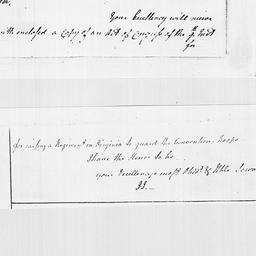 Your Excellency will receive
with enclosed a Copy of an Act of Congress of the Inst
for
for raising a Regiment in Virginia to guard the Convention Troops
I have the Honor to be
your Excellency's most Obedt & Hble Servt